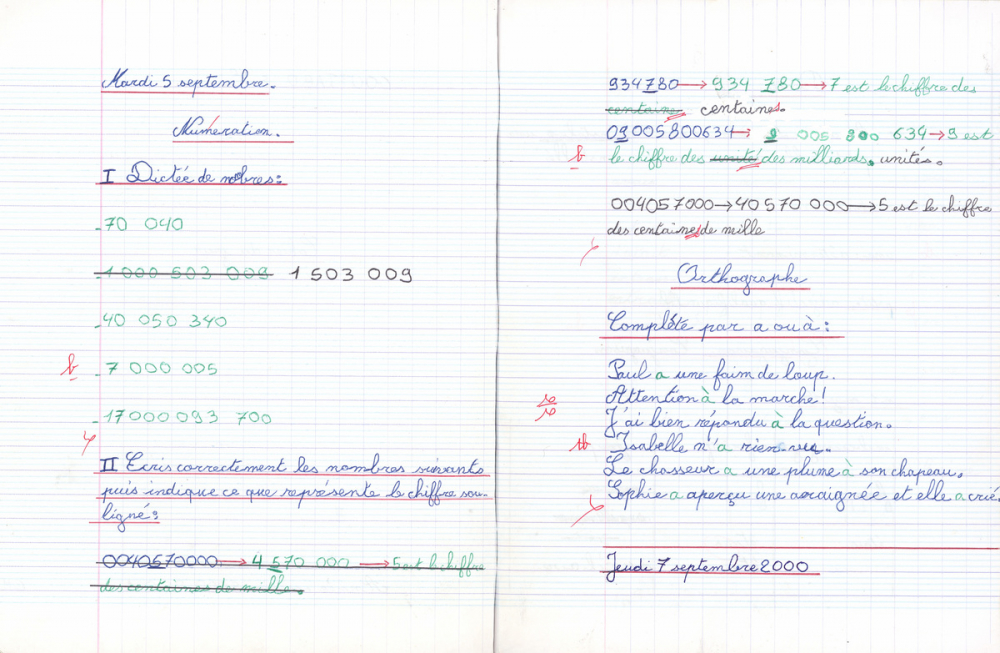 Mardi 5 septembre.
Numération.
I Dictée de nombres:
- 70 040
- 1 000 503 009 1 503 009
- 40 050 340
b - 7 000 005
- 17 000 093 700
II Ecris correctement les nombres suivants
puis indique ce que représente le chiffre sou-
ligné:
0040570000 → 4 570 000 → 5 est le chiffre
des centaines de mille.
934780 → 934 780 → 7 est le chiffre des
centaine centaines.
09005800634 → 9 005 800 634 → 9 est
b le chiffre des unité des milliards, unités.
004057000 → 40 570 000 → 5 est le chiffre
des centaines de mille
Orthographe
Complète par a ou à:
Paul a une faim de loup.
Attention à la marche!
J'ai bien répondu à la question.
tb Isabelle n'a rien vu.
Le chasseur a une plume à son chapeau.
Sophie a aperçu une araignée et elle a crié.
Jeudi 7 septembre 2000